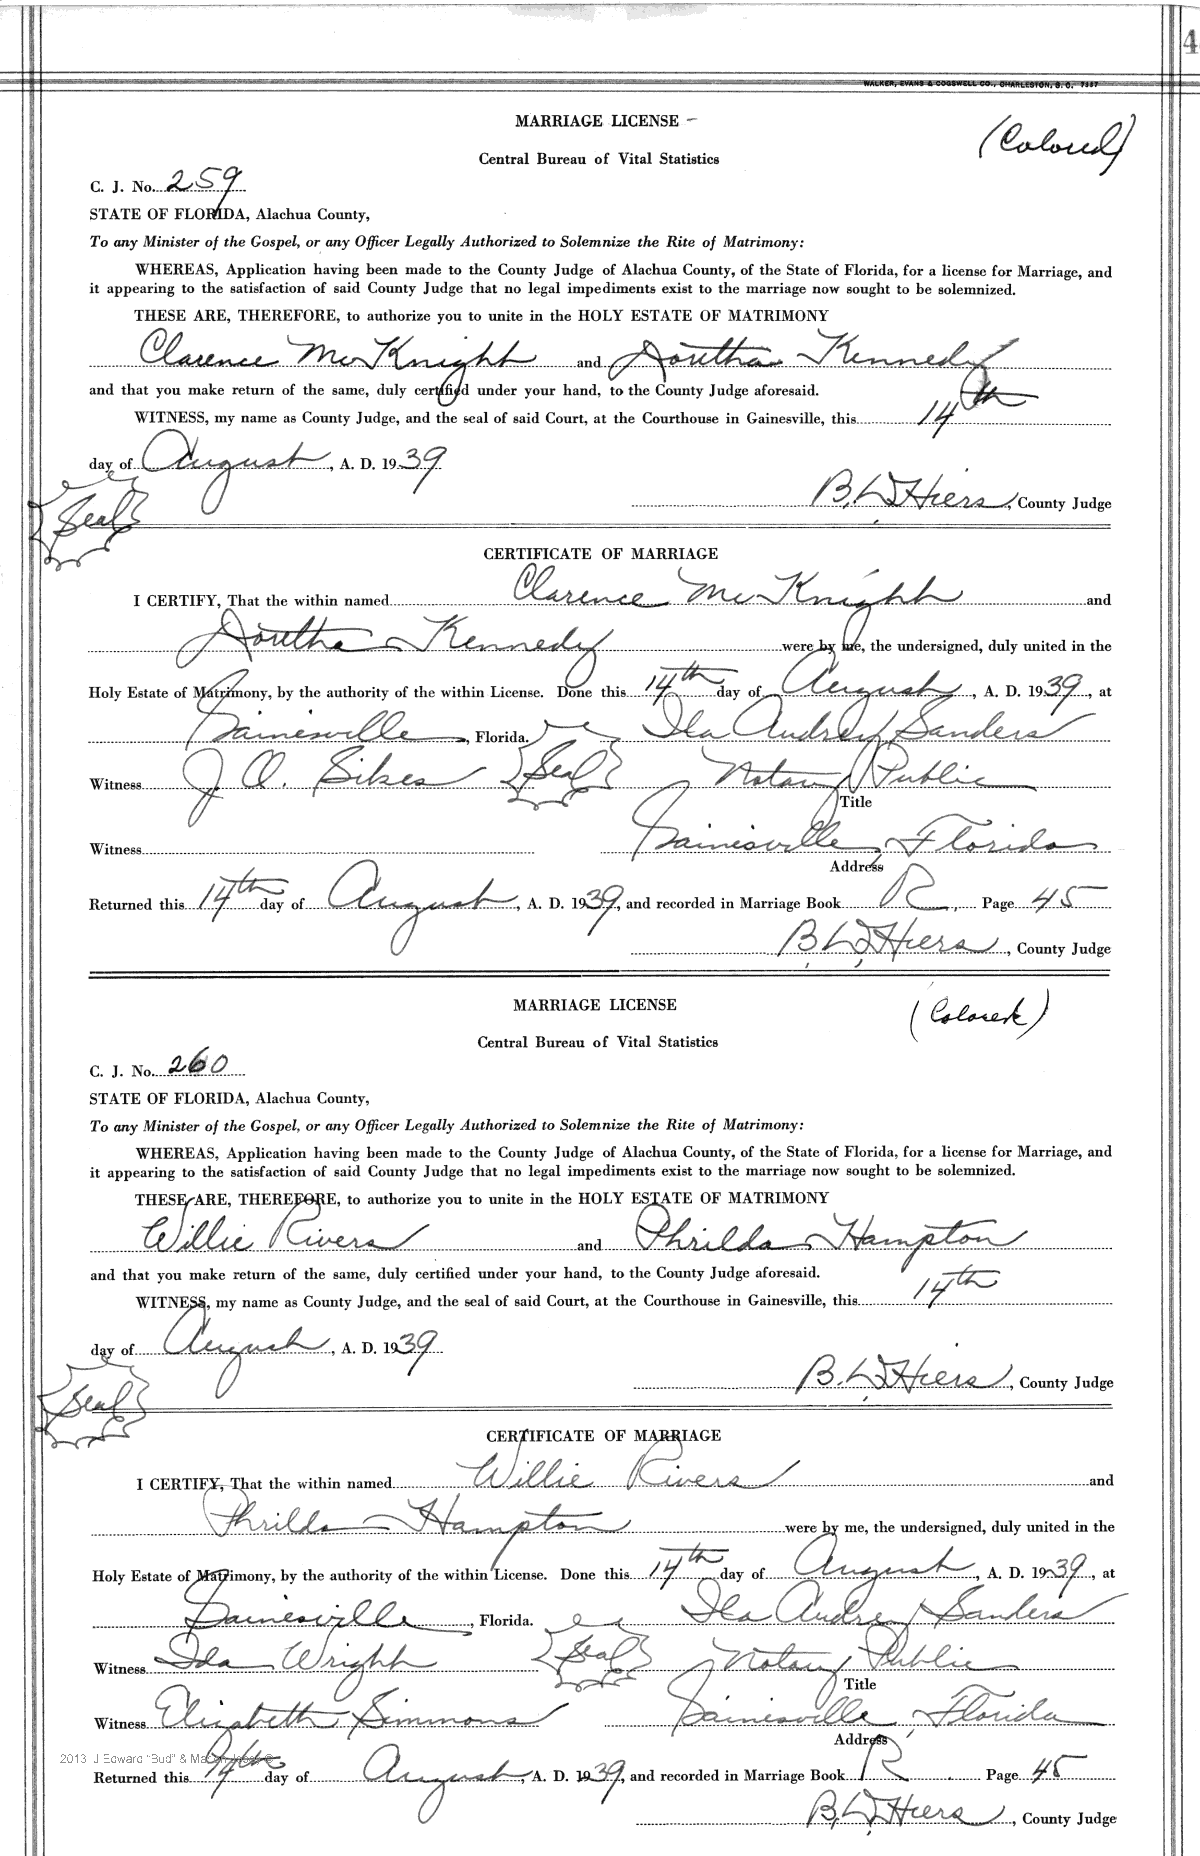 4
WALKER, EVANS & COGSWELL CO., CHARLESTON, S. C. 7557
MARRIAGE LICENSE
(Colored)
Central Bureau of Vital Statistics
C. J. No. 259
STATE OF FLORIDA, Alachua County,
To any Minister of the Gospel, or any Officer Legally Authorized to Solemnize the Rite of Matrimony:
WHEREAS, Application having been made to the County Judge of Alachua County, of the State of Florida, for a license for Marriage, and
it appearing to the satisfaction of said County Judge that no legal impediments exist to the marriage now sought to be solemnized.
THESE ARE, THEREFORE, to authorize you to unite in the HOLY ESTATE OF MATRIMONY
Clarence McKnight and Doretha Kennedy
and that you make return of the same, duly certified under your hand, to the County Judge aforesaid.
WITNESS, my name as County Judge, and the seal of said Court, at the Courthouse in Gainesville, this 14th
day of August, A. D. 1939
Seal
B. L. Hiers, County Judge
CERTIFICATE OF MARRIAGE
I CERTIFY, That the within named Clarence McKnight and
Doretha Kennedy were by me, the undersigned, duly united in the
Holy Estate of Matrimony, by the authority of the within License. Done this 14th day of August, A. D. 1939, at
Gainesville, Florida. Ila Audrey Sanders
Witness J. A. Sikes Seal Notary Public
Title
Witness Gainesville, Florida
Address
Returned this 14th day of August, A. D. 1939, and recorded in Marriage Book R, Page 45
B. L. Hiers, County Judge
MARRIAGE LICENSE
(Colored)
Central Bureau of Vital Statistics
C. J. No. 260
STATE OF FLORIDA, Alachua County,
To any Minister of the Gospel, or any Officer Legally Authorized to Solemnize the Rite of Matrimony:
WHEREAS, Application having been made to the County Judge of Alachua County, of the State of Florida, for a license for Marriage, and
it appearing to the satisfaction of said County Judge that no legal impediments exist to the marriage now sought to be solemnized.
THESE ARE, THEREFORE, to authorize you to unite in the HOLY ESTATE OF MATRIMONY
Willie Rivers and Phrilda Hampton
and that you make return of the same, duly certified under your hand, to the County Judge aforesaid.
WITNESS, my name as County Judge, and the seal of said Court, at the Courthouse in Gainesville, this 14th
day of August, A. D. 1939
Seal
B. L. Hiers, County Judge
CERTIFICATE OF MARRIAGE
I CERTIFY, That the within named Willie Rivers and
Phrilda Hampton were by me, the undersigned, duly united in the
Holy Estate of Matrimony, by the authority of the within License. Done this 14th day of August, A. D. 1939, at
Gainesville, Florida. Ila Audrey Sanders
Witness Ida Wright Seal Notary Public
Title
Witness Elizabeth Simmons Gainesville, Florida
Address
2013 J Edward "Bud" &
Returned this 14th day of August, A. D. 1939, and recorded in Marriage Book R Page 45
B. L. Hiers, County Judge